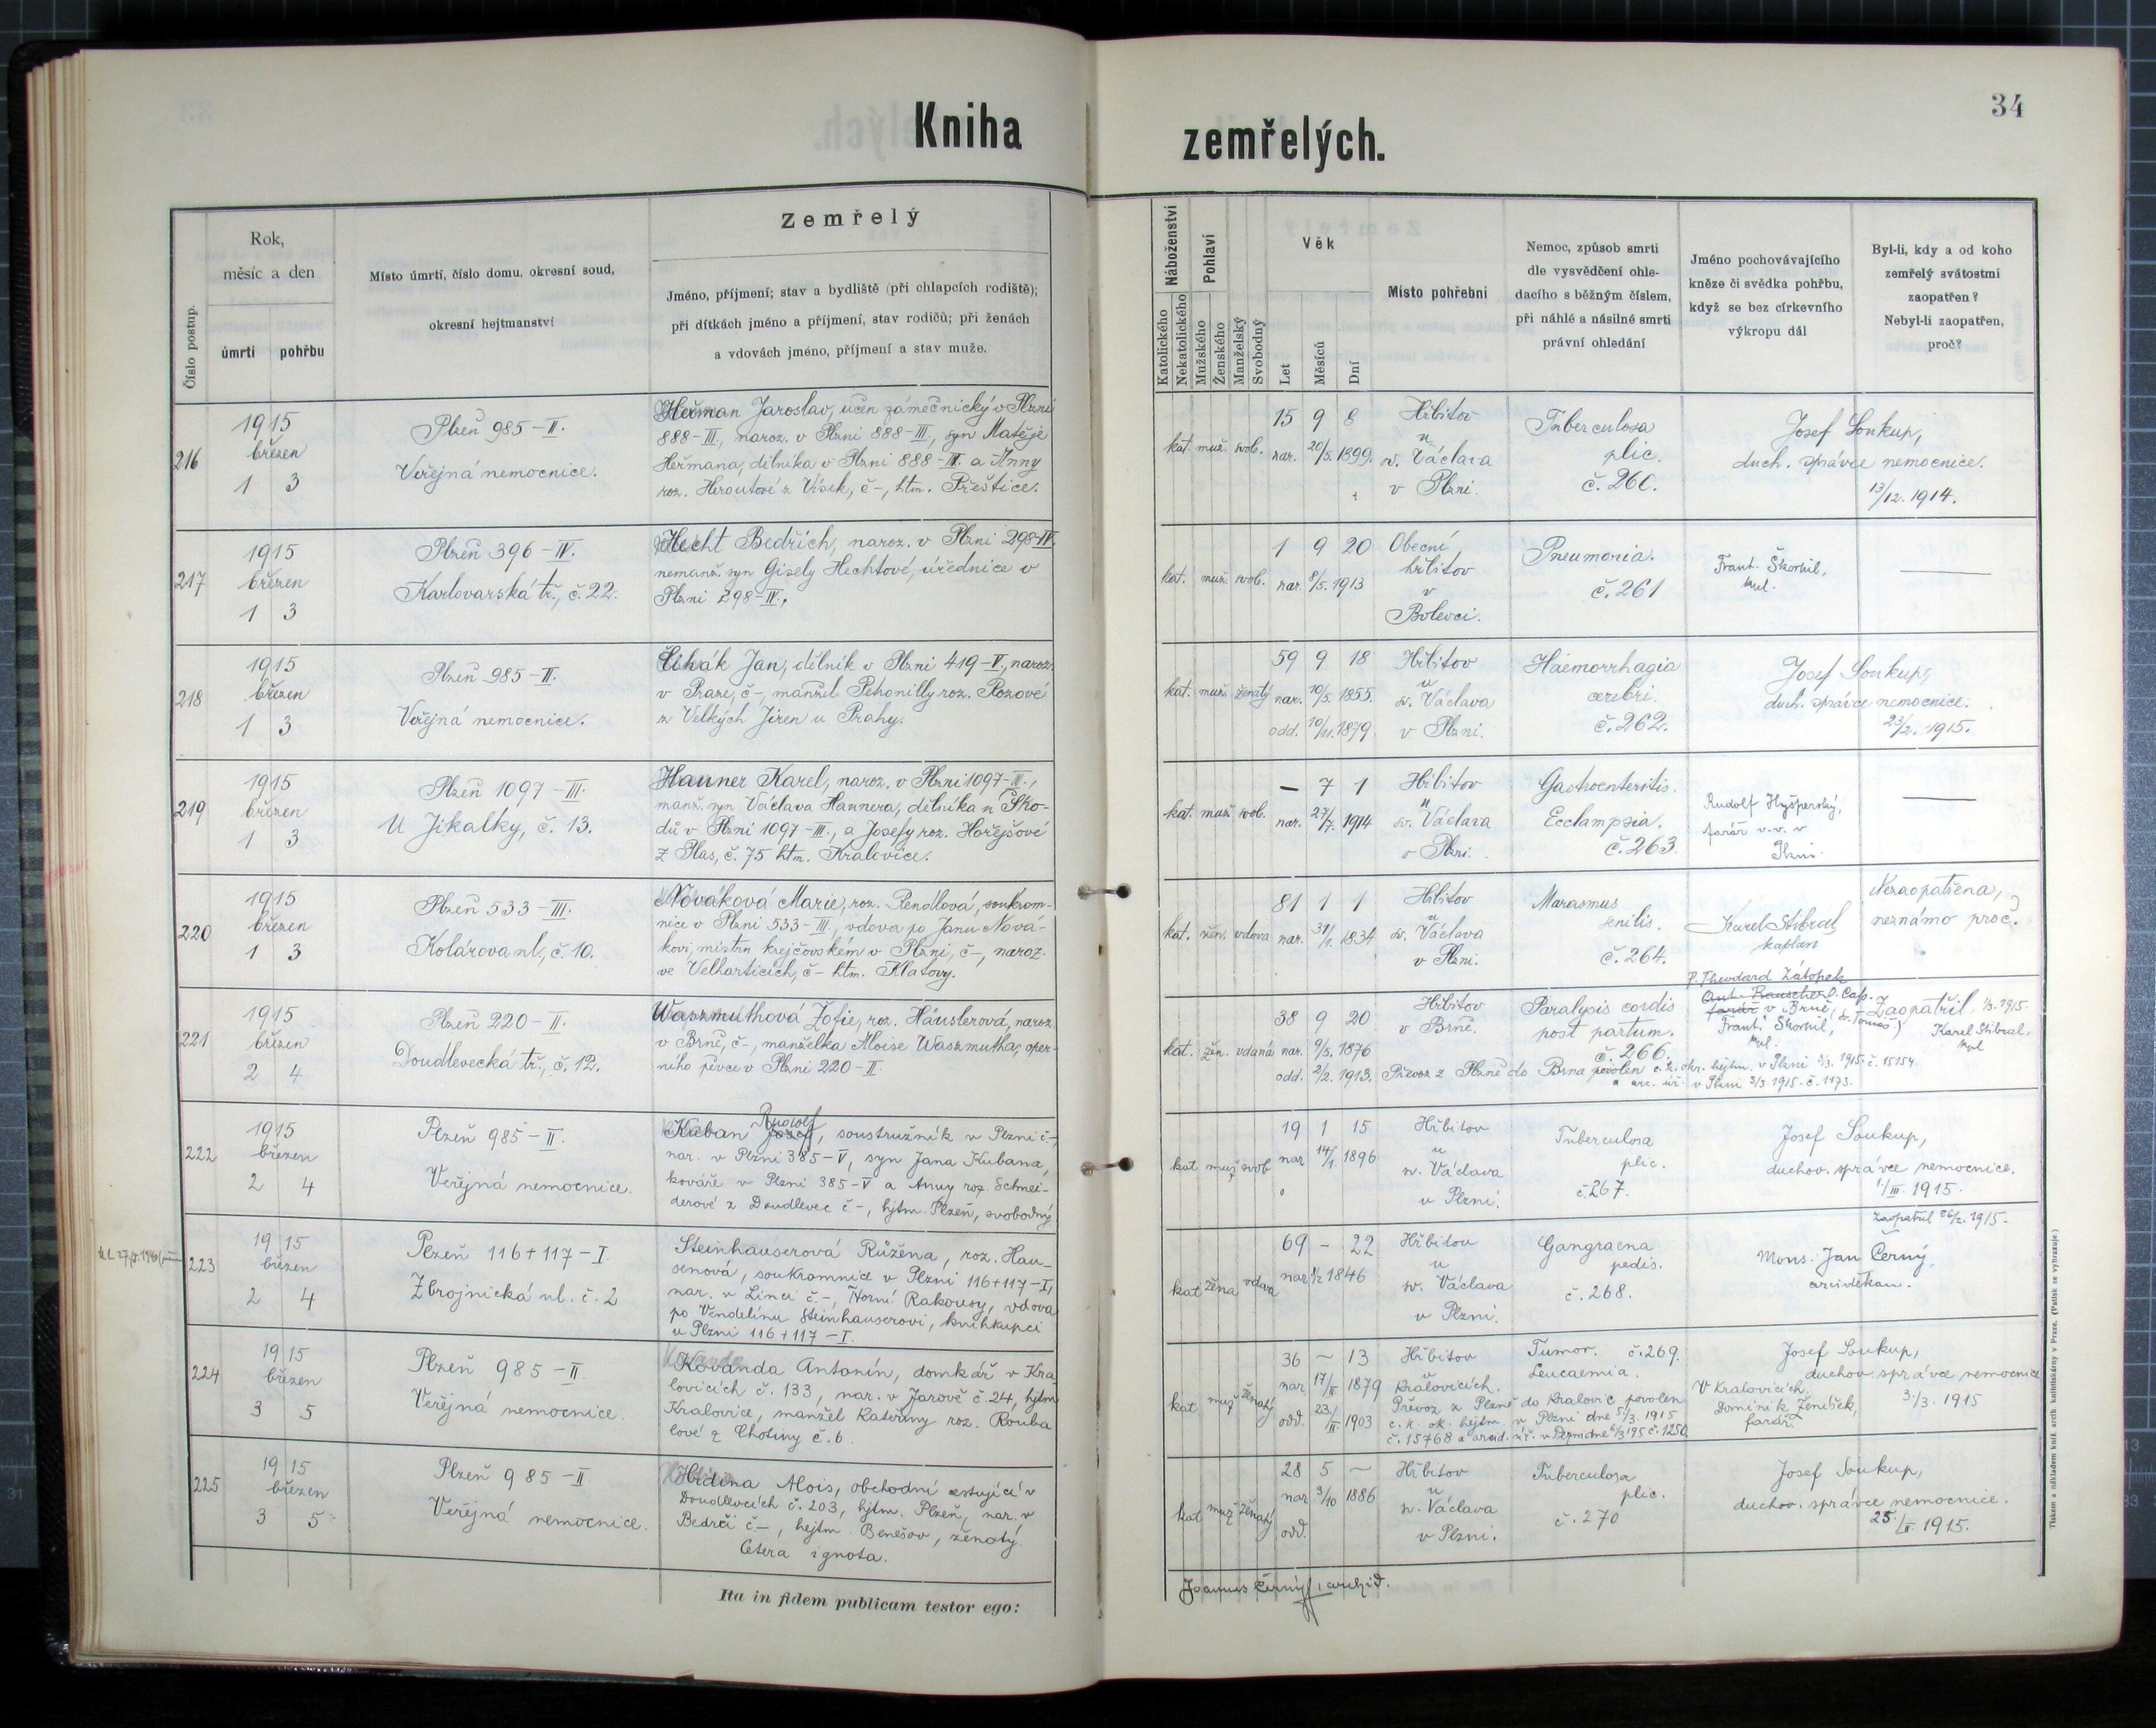 Kniha zemřelých.
34
Číslo postup.
Rok,
měsíc a den
úmrtí
pohřbu
Místo úmrtí, číslo domu, okresní soud,
okresní hejtmanství
Zemřelý
Jméno, příjmení; stav a bydliště (při chlapcích rodiště);
při dítkách jméno a příjmení, stav rodičů; při ženách
a vdovách jméno, příjmení a stav muže.
Náboženství
Katolického
Nekatolického
Pohlaví
Mužského
Ženského
Manželský
Svobodný
Věk
Let
Měsíců
Dní
Místo pohřební
Nemoc, způsob smrti
dle vysvědčení ohle-
dacího s běžným číslem,
při náhlé a násilné smrti
právní ohledání
Jméno pochovávajícího
kněze či svědka pohřbu,
když se bez církevního
výkropu dál
Byl-li, kdy a od koho
zemřelý svátostmi
zaopatřen?
Nebyl-li zaopatřen,
proč?
216
1915
březen
1 3
Plzeň 985-II.
Veřejná nemocnice.
Heřman Jaroslav, učen zámečnický v Plzni
888-III., naroz. v Plzni 888-III., syn Matěje
Heřmana, dělníka v Plzni 888-III. a Anny
roz. Heroutové z Vísek, č-, htm. Přeštice.
kat. muž. svob.
15 9 8
nar. 20/5. 1899.
Hřbitov
u
sv. Václava
v Plzni.
Tuberculosa
plic.
č. 260.
Josef Soukup,
duch. správce nemocnice.
13/12. 1914.
217
1915
březen
1 3
Plzeň 396-IV.
Karlovarská tř., č. 22.
Hecht Bedřich, naroz. v Plzni 298-IV.
nemanž. syn Gisely Hechtové, úřednice v
Plzni 298-IV.,
kat. muž. svob.
1 9 20
nar. 8/5. 1913
Obecní
hřbitov
v
Bolevci.
Pneumonia.
č. 261
Frant. Škorhil,
kpl.
218
1915
březen
1 3
Plzeň 985-II.
Veřejná nemocnice.
Čihák Jan, dělník v Plzni 419-V., naroz.
v Praze, č-, manžel Petronilly roz. Rozové
z Velkých Jiren u Prahy.
kat. muž. ženatý
59 9 18
nar. 10/5. 1855.
odd. 10/11. 1879.
Hřbitov
u
sv. Václava
v Plzni.
Haemorrhagia
cerebri.
č. 262.
Josef Soukup,
duch. správce nemocnice.
23/2. 1915.
219
1915
březen
1 3
Plzeň 1097-III.
U Jikalky, č. 13.
Hauner Karel, naroz. v Plzni 1097-III.,
manž. syn Václava Haunera, dělníka u Ško-
dů v Plzni 1097-III., a Josefy roz. Hořejšové
z Plas, č. 75 htm. Kralovice.
kat. muž. svob.
- 7 1
nar. 27/7. 1914
Hřbitov
u
sv. Václava
v Plzni.
Gastroenteritis.
Ecclampsia.
č. 263.
Rudolf Hyšperský,
farář v. v. v
Plzni.
220
1915
březen
1 3
Plzeň 533-III.
Kolárova ul., č. 10.
Nováková Marie, roz. Rendlová, soukrom-
nice v Plzni 533-III., vdova po Janu Nová-
kovi, mistru krejčovském v Plzni, č-, naroz.
ve Velharticích, č- htm. Klatovy.
kat. žen. vdova
81 1 1
nar. 31/1. 1834
Hřbitov
u
sv. Václava
v Plzni.
Marasmus
senilis.
č. 264.
Karel Stibral
kaplan
Nezaopatřena,
neznámo proč.
221
1915
březen
2 4
Plzeň 220-II.
Doudlevecká tř., č. 12.
Waszmuthová Žofie, roz. Häuslerová, naroz.
v Brně, č-, manželka Aloise Waszmutha, oper-
ního pěvce v Plzni 220-II.
kat. žen. vdaná
38 9 20
nar. 9/5. 1876
odd. 2/2. 1913.
Hřbitov
v Brně.
Paralysis cordis
post partum.
č. 266.
P. Theodard Zátopek
O. Cap.
farář v Brně, (sv. Tomáš)
Frant. Škorhil,
kpl.
Zaopatřil 1/3. 1915.
Karel Stibral,
kpl
Převoz z Plzně do Brna povolen c. k. okr. hejtm. v Plzni 3/3. 1915. č. 15154.
a arc. úř. v Plzni 3/3 1915. č. 1173.
222
1915
březen
2 4
Plzeň 985-II.
Veřejná nemocnice.
Rudolf
Kuban Josef, soustružník v Plzni č.-,
nar. v Plzni 385-V, syn Jana Kubana,
kováře v Plzni 385-V a Anny roz. Schnei-
derové z Doudlevec č-, hjtm. Plzeň, svobodný
kat muž svob
19 1 15
nar 14/1. 1896
Hřbitov
u
sv. Václava
v Plzni.
Tuberculosa
plic.
č. 267.
Josef Soukup,
duchov. správce nemocnice.
1./III. 1915.
223
1915
březen
2 4
Plzeň 116+117-I.
Zbrojnická ul. č. 2
Steinhauserová Růžena, roz. Hau-
senová, soukromnice v Plzni 116+117-I,
nar. v Linci č.-, Horní Rakousy, vdova
po Vendelínu Steinhauserovi, knihkupci
v Plzni 116+117-I.
kat žena vdova
69 - 22
1846
Hřbitov
u
sv. Václava
v Plzni.
Gangraena
pedis.
č. 268.
zaopatřil 26/2. 1915.
Mons. Jan Černý,
arciděkan.
224
1915
březen
3 5
Plzeň 985-II
Veřejná nemocnice.
Kovanda Antonín, domkář v Kra-
lovicích č. 133, nar. v Jarově č. 24, hjtm
Kralovice, manžel Kateřiny roz. Rouba
lové z Chotiny č. 6.
kat muž ženatý
36 ~ 13
nar 17/II 1879
odd. 23./II. 1903
Hřbitov
v
Kralovicích.
Tumor. č. 269.
Leucaemia.
Převoz z Plzně do Kralovic povolen
c. k. ok. hejtm. v Plzni dne 5/3. 1915
č. 15768 a arcid. úř. v Plzni dne 5/3 195 č. 1250.
Josef Soukup,
duchov. správce nemocnice
3./3. 1915
V Kralovicích,
Dominik Ženíšek,
farář.
225
1915
březen
3 5
Plzeň 985-II
Veřejná nemocnice.
Hrdina Alois, obchodní cestující v
Doudlevcích č. 203, hjtm. Plzeň, nar. v
Bedrči č-, hejtm. Benešov, ženatý.
Cetera ignota.
kat muž ženatý
28 5 ~
nar 3/10 1886
odd.
Hřbitov
u
sv. Václava
v Plzni.
Tuberculosa
plic.
č. 270
Josef Soukup,
duchov. správce nemocnice.
25./II. 1915.
Ita in fidem publicam testor ego:
Joannes Černý, archid.
Tiskem a nákladem kníž. arcib. knihtiskárny v Praze. (Patisk se vyhrazuje.)